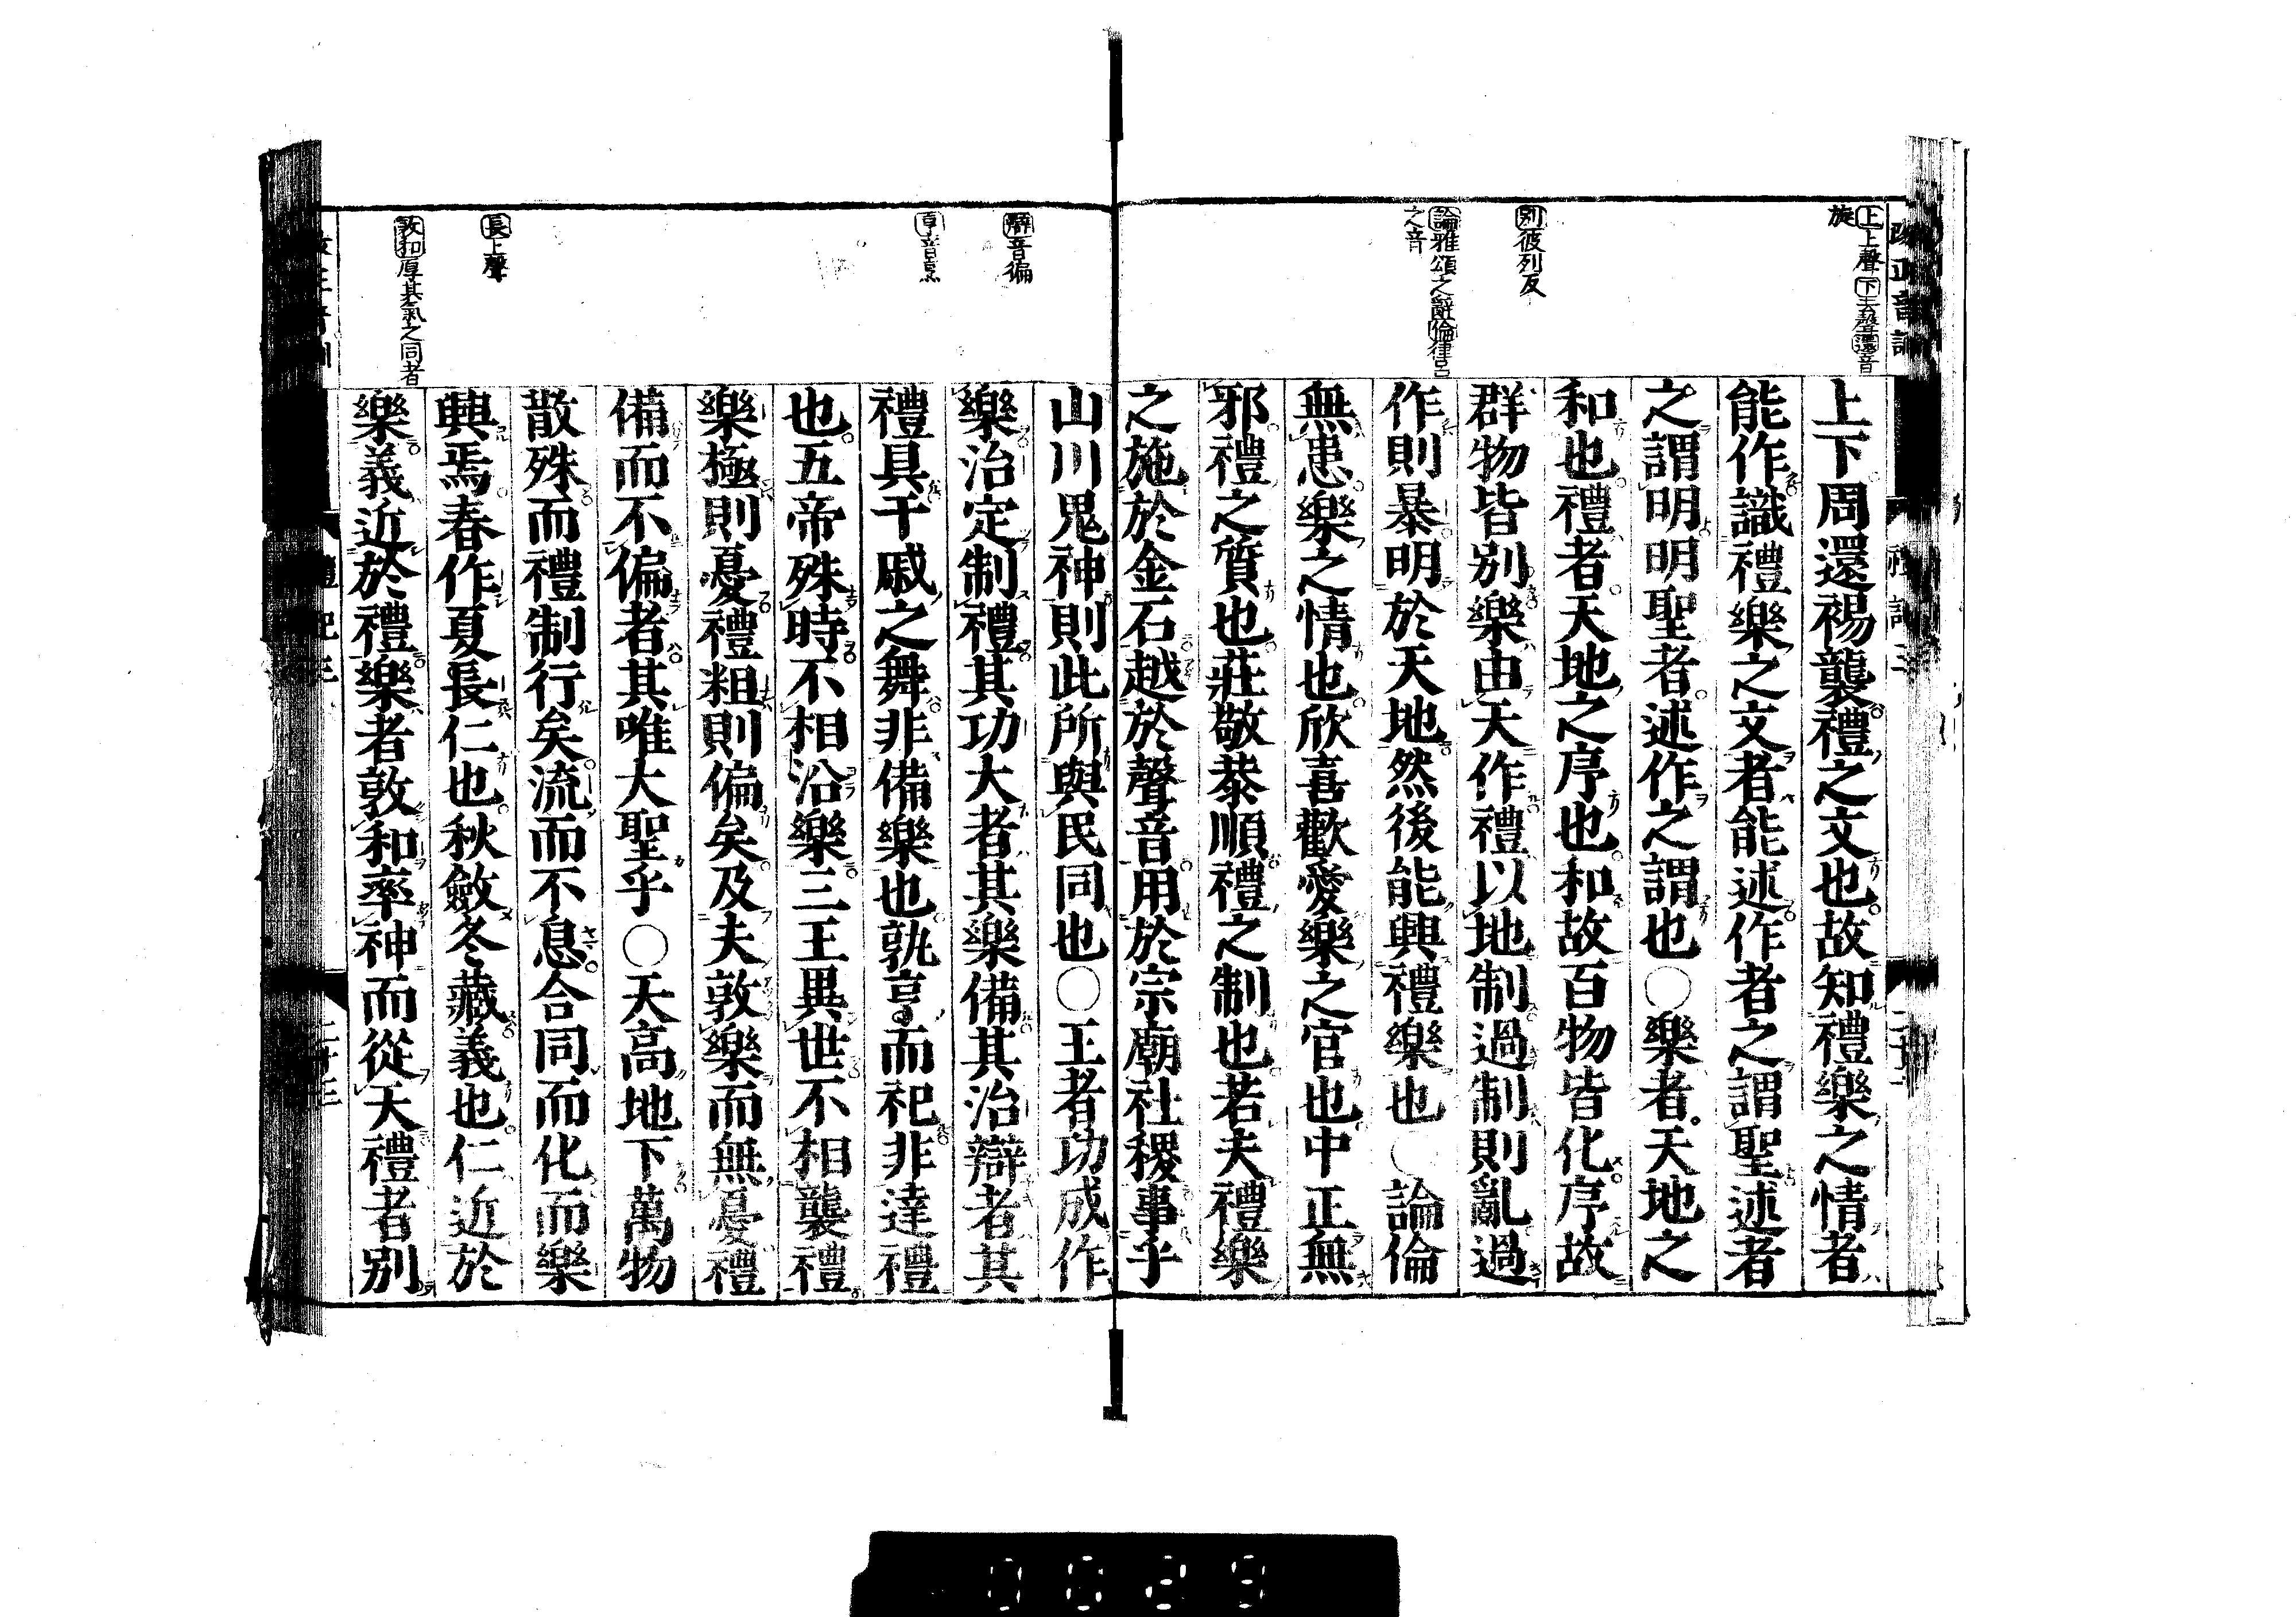 上上聲下去聲還音
旋
別彼列反
論雅頌之辭倫律呂
之音
上下周還裼襲禮之文也故知禮樂之情者
能作識禮樂之文者能述作者之謂聖述者
之謂明明聖者述作之謂也○樂者天地之
和也禮者天地之序也和故百物皆化序故
群物皆別樂由天作禮以地制過制則亂過
作則暴明於天地然後能興禮樂也○論倫
無患樂之情也欣喜歡愛樂之官也中正無
邪禮之質也莊敬恭順禮之制也若夫禮樂
之施於金石越於聲音用於宗廟社稷事乎
辯音徧
亨音烹
長上聲
敦和厚其氣之同者
山川鬼神則此所與民同也○王者功成作
樂治定制禮其功大者其樂備其治辯者其
禮具干戚之舞非備樂也孰亨而祀非達禮
也五帝殊時不相沿樂三王異世不相襲禮
樂極則憂禮粗則偏矣及夫敦樂而無憂禮
備而不偏者其唯大聖乎○天高地下萬物
散殊而禮制行矣流而不息合同而化而樂
興焉春作夏長仁也秋斂冬藏義也仁近於
樂義近於禮樂者敦和率神而從天禮者別